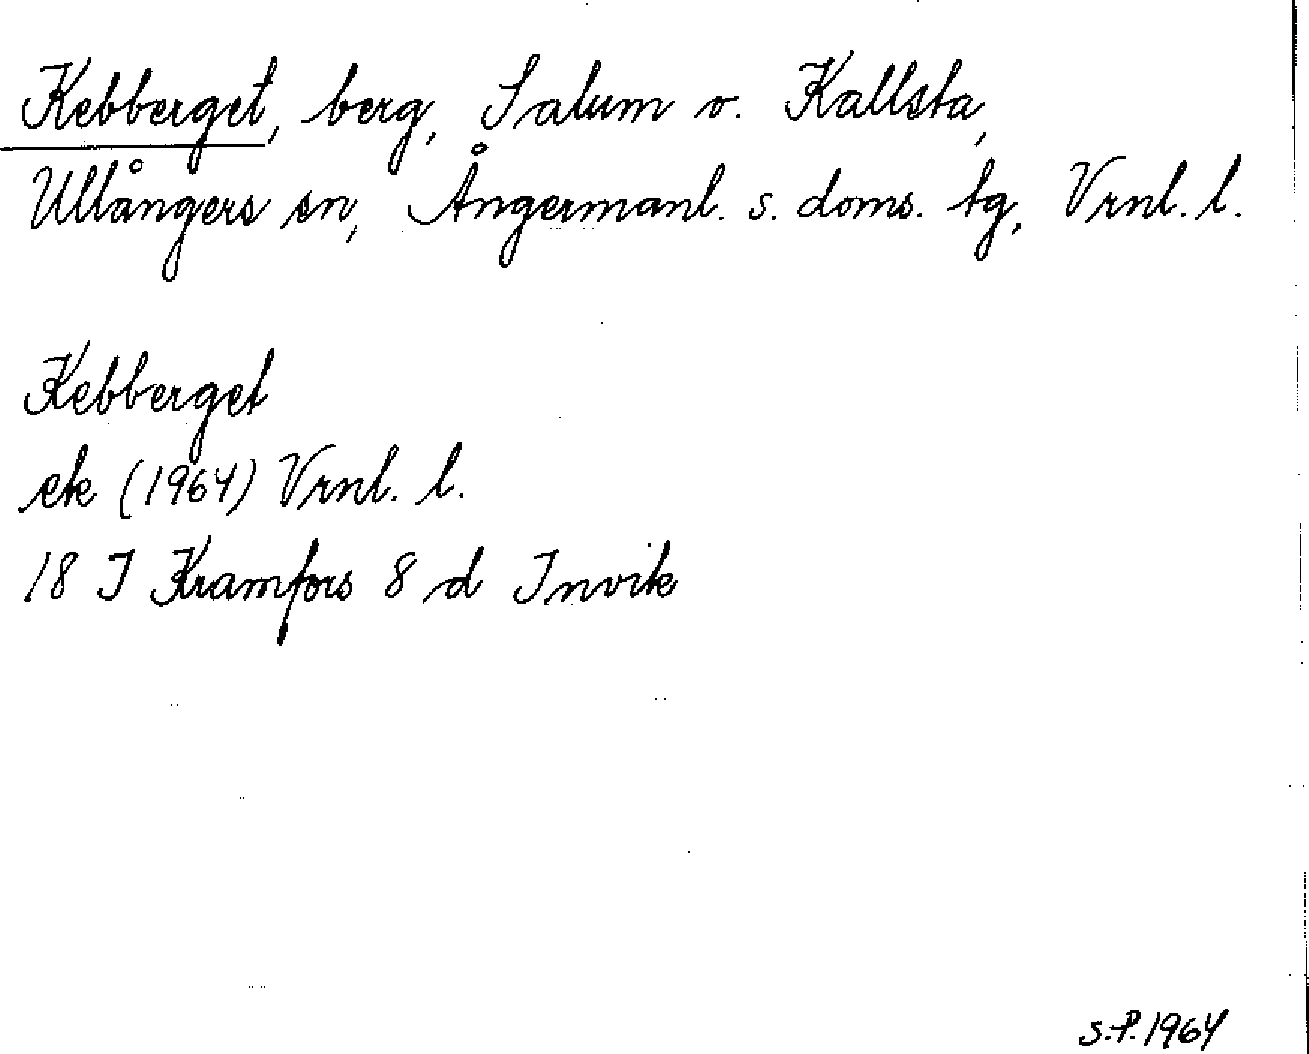 Kebberget, berg, Salum o. Kallsta,
Ullångers sn, Ångermanl. s. doms. tg, Vrnl. l.
Kebberget
ek (1964) Vrnl. l.
18 I Kramfors 8 d Invik
S.P. 1964